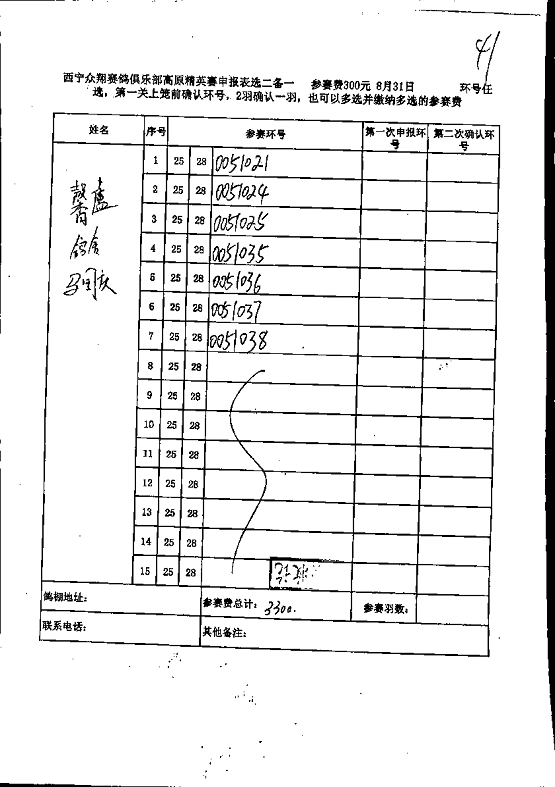 41
西宁众翔赛鸽俱乐部高原精英赛申报表选二备一 参赛费300元 8月31日 环号任
选，第一关上笼前确认环号，2羽确认一羽，也可以多选并缴纳多选的参赛费
姓名 序号 参赛环号 第一次申报环号 第二次确认环号
馨盧
鸽舍
马国庆
1 25 28 0051021
2 25 28 0051024
3 25 28 0051025
4 25 28 0051035
5 25 28 0051036
6 25 28 0051037
7 25 28 0051038
8 25 28
9 25 28
10 25 28
11 25 28
12 25 28
13 25 28
14 25 28
15 25 28
鸽棚地址： 参赛费总计：3300. 参赛羽数：
联系电话： 其他备注：